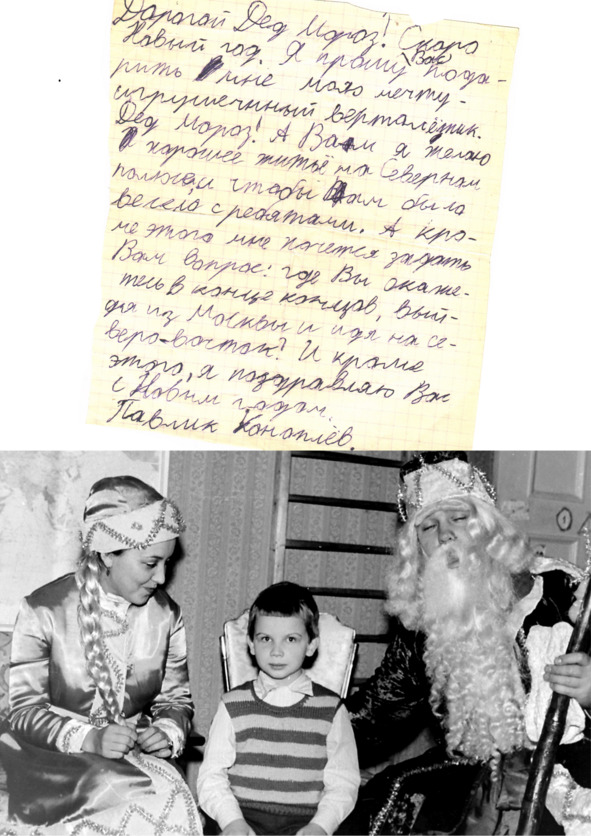 Дорогой Дед Мороз! Скоро
Новый год. Я прошу Вас пода-
рить мне мою мечту -
игрушечный вертолётик.
Дед Мороз! А Вам я желаю
хорошее житьё на Северном
полюсе, и чтобы Вам было
весело с ребятами. А кро-
ме этого мне хочется задать
Вам вопрос: где Вы окаже-
тесь в конце концов, вый-
дя из Москвы и идя на се-
веро-восток? И кроме
этого, я поздравляю Вас
с Новым годом.
Павлик Коноплёв.